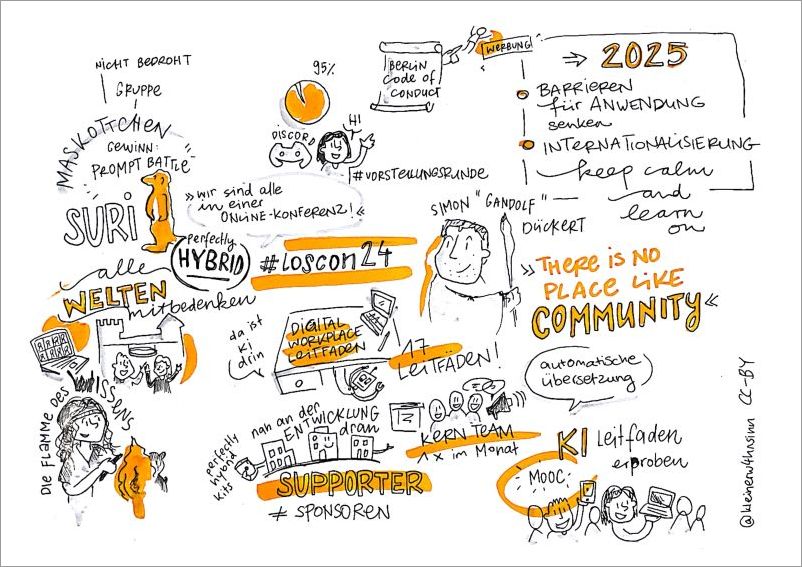 NICHT BEDROHT
GRUPPE
MASKOTTCHEN
GEWINN:
PROMPT BATTLE
SURI
95%
DISCORD
HI
#VORSTELLUNGSRUNDE
BERLIN
CODE OF
CONDUCT
WERBUNG
⇒ 2025
BARRIEREN
für ANWENDUNG
senken
INTERNATIONALISIERUNG
keep calm
and
learn
on
»wir sind alle
in einer
ONLINE-KONFERENZ!«
perfectly
HYBRID
#LOSCON24
SIMON "GANDOLF"
DÜCKERT
»THERE IS NO
PLACE LIKE
COMMUNITY«
alle
WELTEN
mitbedenken
da ist
KI
drin
DIGITAL
WORKPLACE
LEITFADEN
17
LEITFÄDEN!
automatische
übersetzung
DIE FLAMME DES WISSENS
perfectly
hybrid
kits
nah an der
ENTWICKLUNG
dran
SUPPORTER
≠ SPONSOREN
KERNTEAM
1 x im Monat
KI Leitfaden
erproben
MOOC
@kleinerw4hnsinn CC-BY